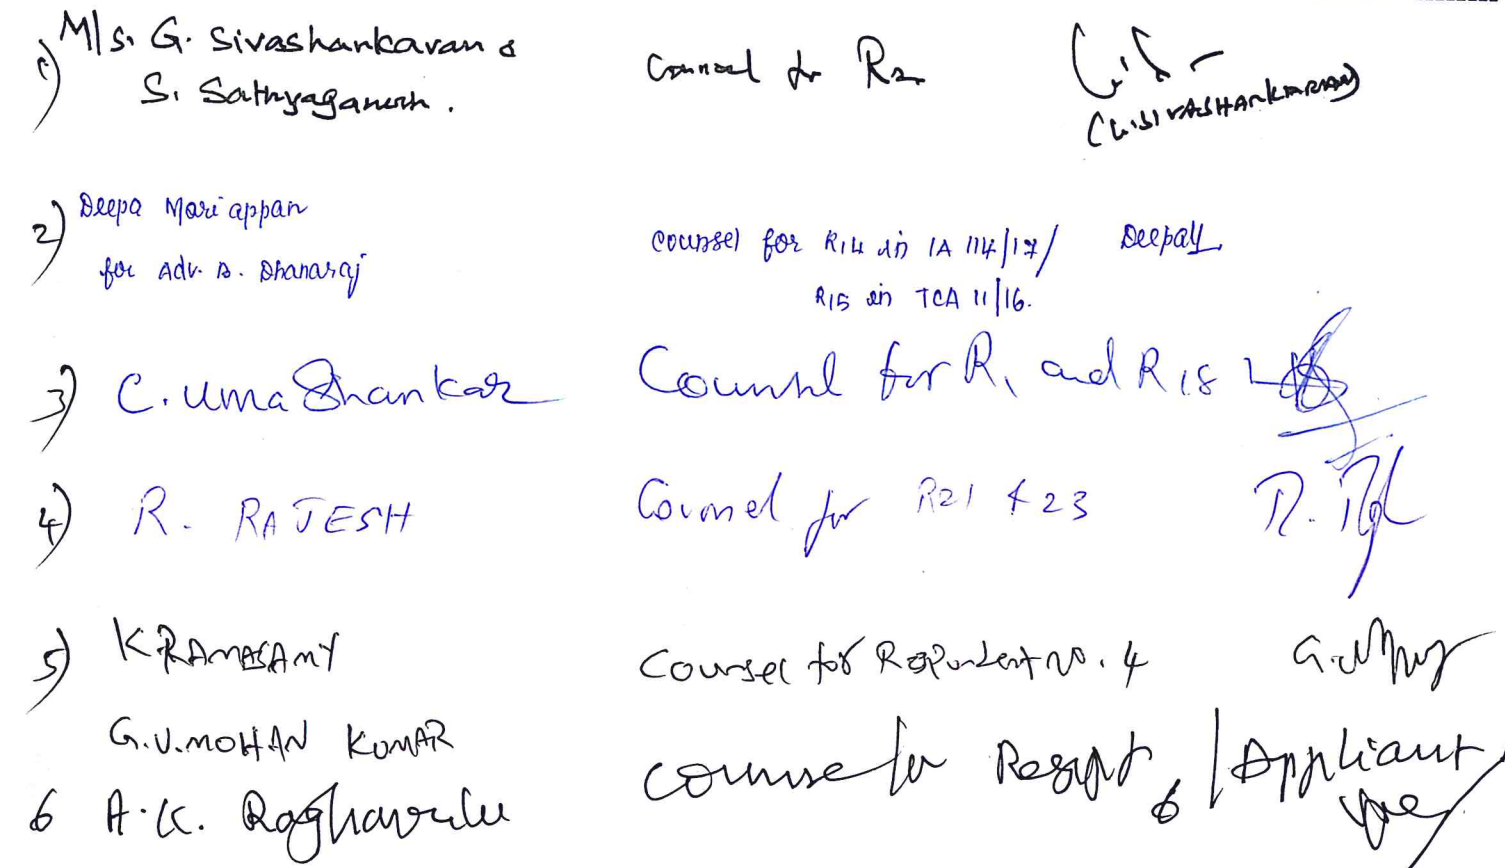 1) M/s. G. Sivashankaran &
S. Sathyaganesh.
Counsel for R2
(G. SIVASHANKARAN)
2) Deepa Mariappan
for Adv. B. Dhanaraj
counsel for R14 in IA 114/17/
R15 in TCA 11/16.
Deepa
3) C. Uma Shankar
Counsel for R1 and R18
4) R. RAJESH
Counsel for R21 & 23
5) K RAMASAMY
Counsel for Respondent no. 4
G.V. MOHAN KUMAR
6 A.K. Raghavulu
Counse for Respt 6 / Applicant